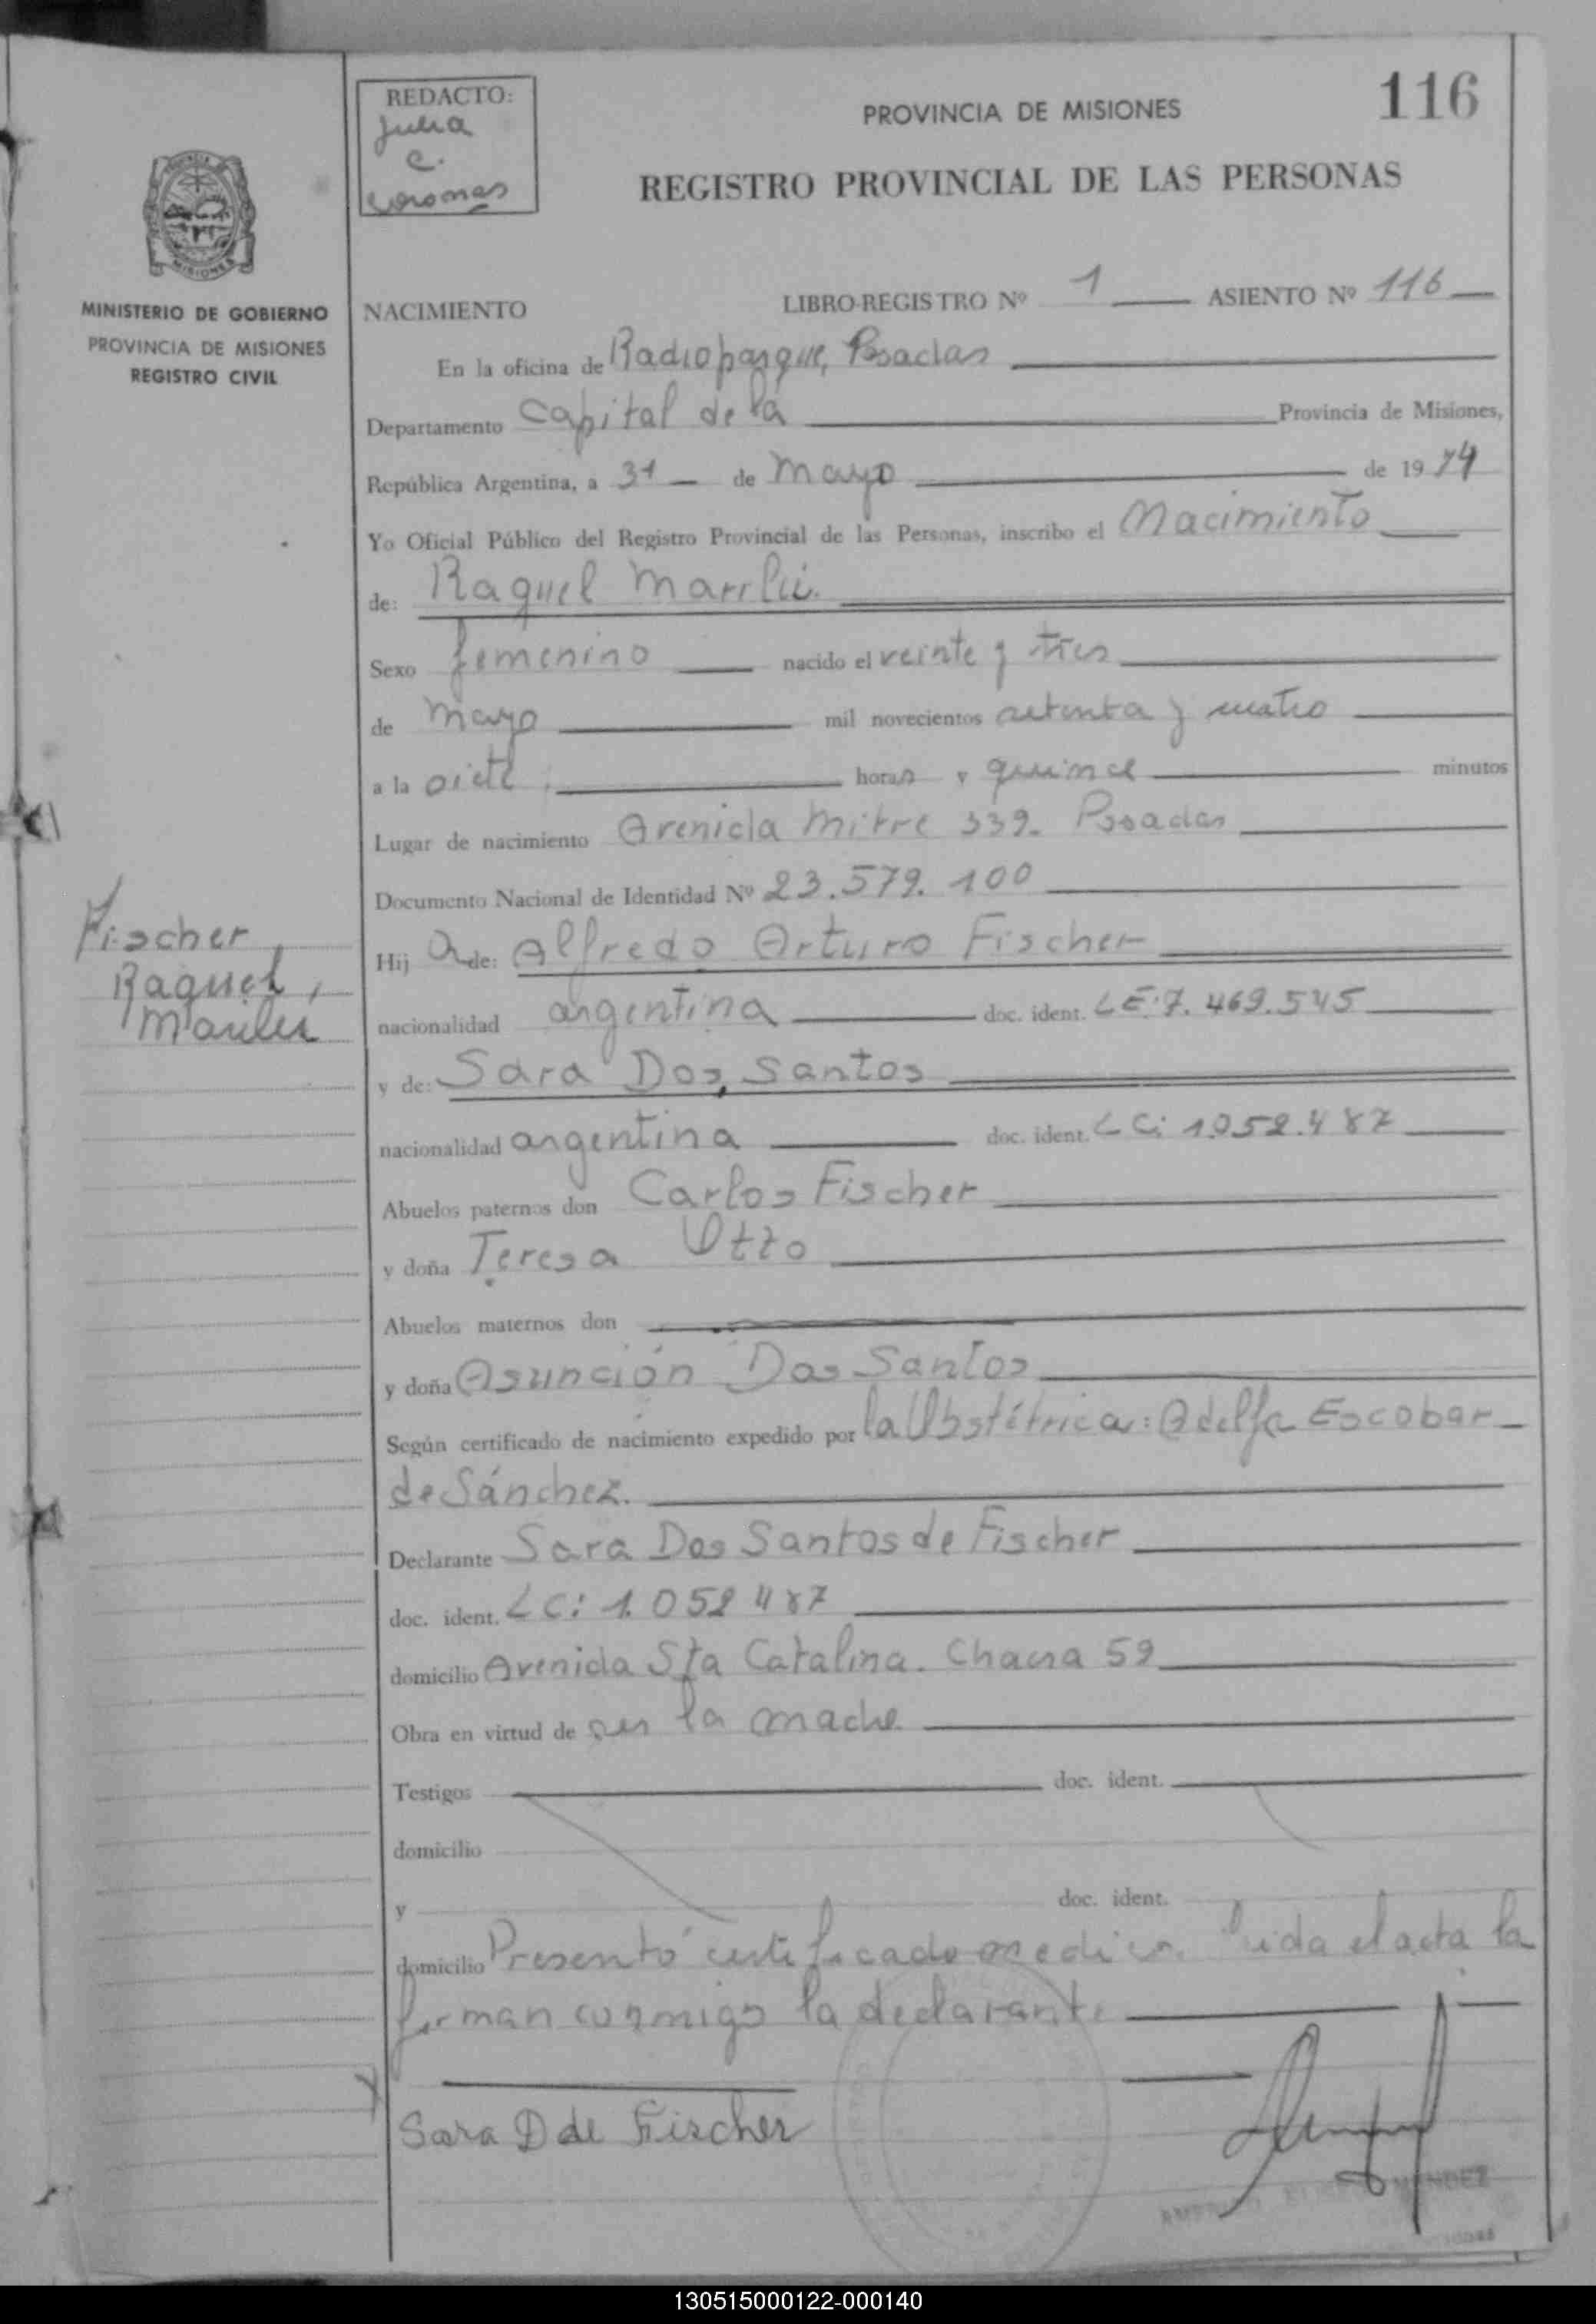 116
REDACTO:
Julia
C.
Coronas
PROVINCIA DE MISIONES
REGISTRO PROVINCIAL DE LAS PERSONAS
MISIONES
MINISTERIO DE GOBIERNO
PROVINCIA DE MISIONES
REGISTRO CIVIL
NACIMIENTO LIBRO-REGISTRO Nº 1 ASIENTO Nº 116
En la oficina de Radioparque, Posadas
Departamento Capital de la Provincia de Misiones,
República Argentina, a 31 de Mayo de 1974
Yo Oficial Público del Registro Provincial de las Personas, inscribo el Nacimiento
de: Raquel
Sexo femenino nacido el veinte y tres
de Mayo mil novecientos setenta y cuatro
a la siete horas y quince minutos
Lugar de nacimiento Avenida Mitre 339. Posadas
Documento Nacional de Identidad Nº 23.579.100
Fischer
Raquel,
Hij a de: Alfredo Arturo Fischer
nacionalidad argentina doc. ident. LE:7.469.545
y de: Sara Dos Santos
nacionalidad argentina doc. ident. LC: 1.052.487
Abuelos paternos don Carlos Fischer
y doña Teresa Otto
Abuelos maternos don
y doña Asunción Dos Santos
Según certificado de nacimiento expedido por la Obstétrica: Adelfa Escobar
de Sánchez.
Declarante Sara Dos Santos de Fischer
doc. ident. LC: 1.052 487
domicilio Avenida Sta Catalina. Chacra 59
Obra en virtud de ser la madre
Testigos doc. ident.
domicilio
y doc. ident.
domicilio Presentó certificado medico. Leida el acta la
firman conmigo la declarante
Sara D de Fischer
MENDEZ
130515000122-000140